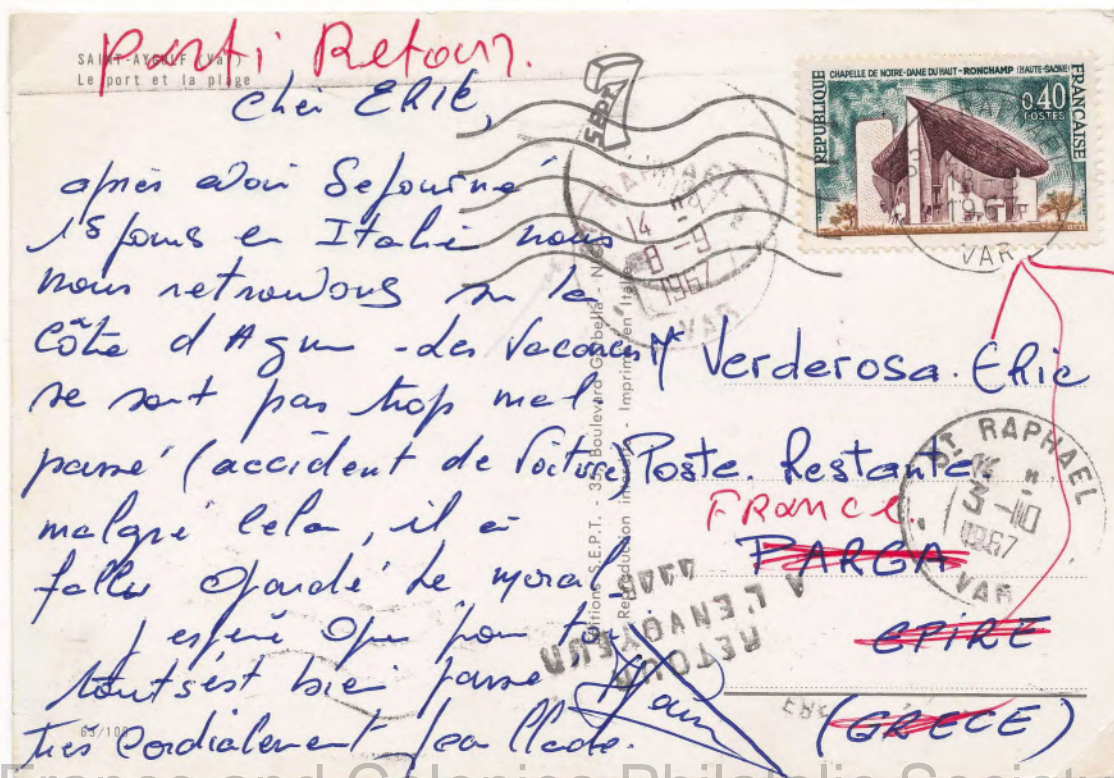 Parti Retour.
SAINT-AYGULF (Var)
Le port et la plage
Cher ERIC,
après avoir Séjourné
15 jours en Italie nous
nous retrouvons sur la
Côte d'Azur - les vacances
se sont pas trop mal
passé (accident de voiture)
malgré cela, il a
fallu gardé le moral
j'espère que pour toi
tout s'est bien passé
très cordialement
63/100
Editions S.E.P.T. - 35, Boulevard Garbella - N
Reproduction in - Imprimé en Italie
7 SEPT
RAPHAEL
14
8-9
1967
VAR
REPUBLIQUE FRANÇAISE
CHAPELLE DE NOTRE-DAME DU HAUT-RONCHAMP (HAUTE-SAÔNE)
0,40
POSTES
1967
VAR
Mr Verderosa. ERic
Poste. Restante.
FRance.
PARGA
EPIRE
(GRECE)
ST RAPHAEL
3-10
1967
VAR
RETOUR
A L'ENVOYEUR
4440
France and Colonies Philatelic Society